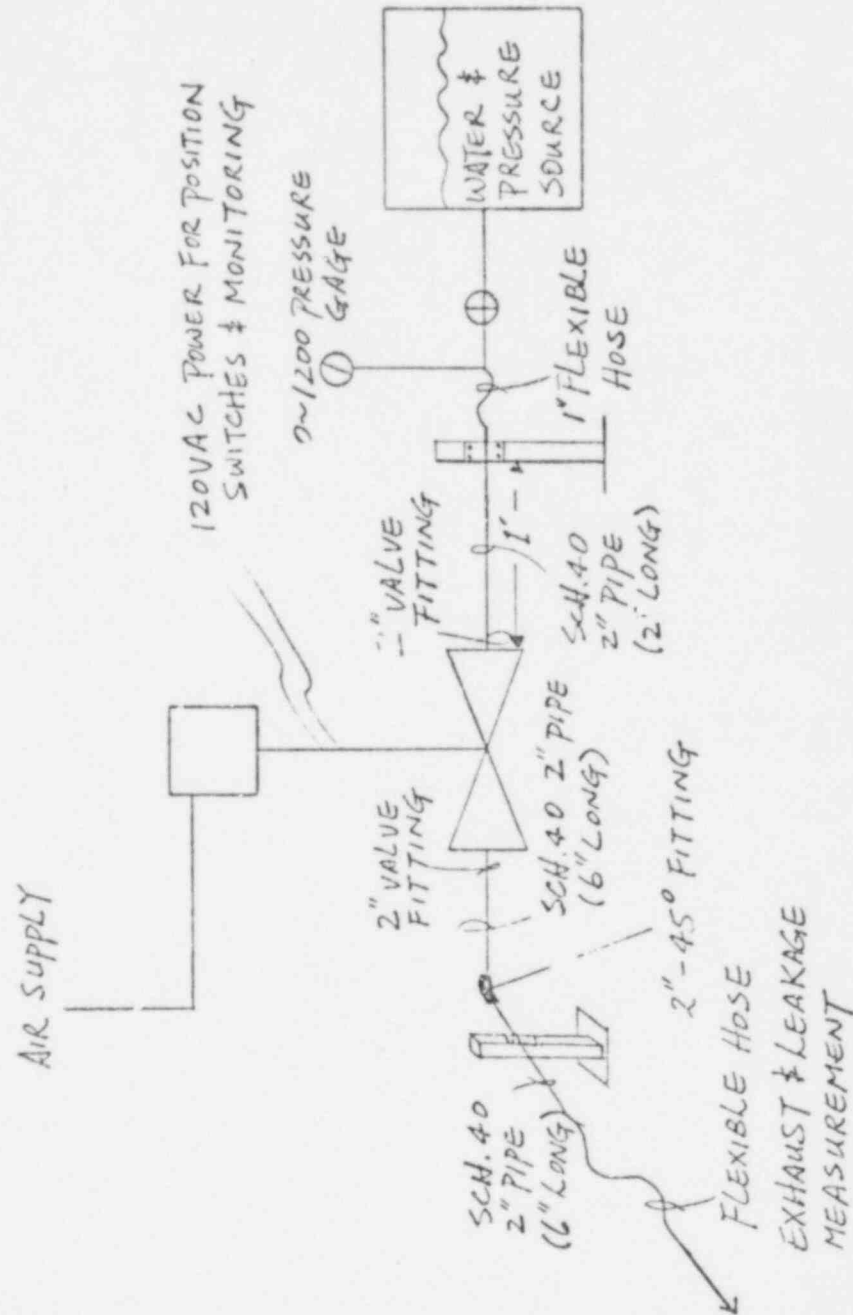 AIR SUPPLY
120VAC POWER FOR POSITION
SWITCHES & MONITORING
0~1200 PRESSURE
GAGE
WATER &
PRESSURE
SOURCE
2" VALVE
FITTING
VALVE
FITTING
1'
1" FLEXIBLE
HOSE
SCH.40
2" PIPE
(2' LONG)
SCH.40 2" PIPE
(6" LONG)
2"-45° FITTING
SCH.40
2" PIPE
(6" LONG)
FLEXIBLE HOSE
EXHAUST & LEAKAGE
MEASUREMENT